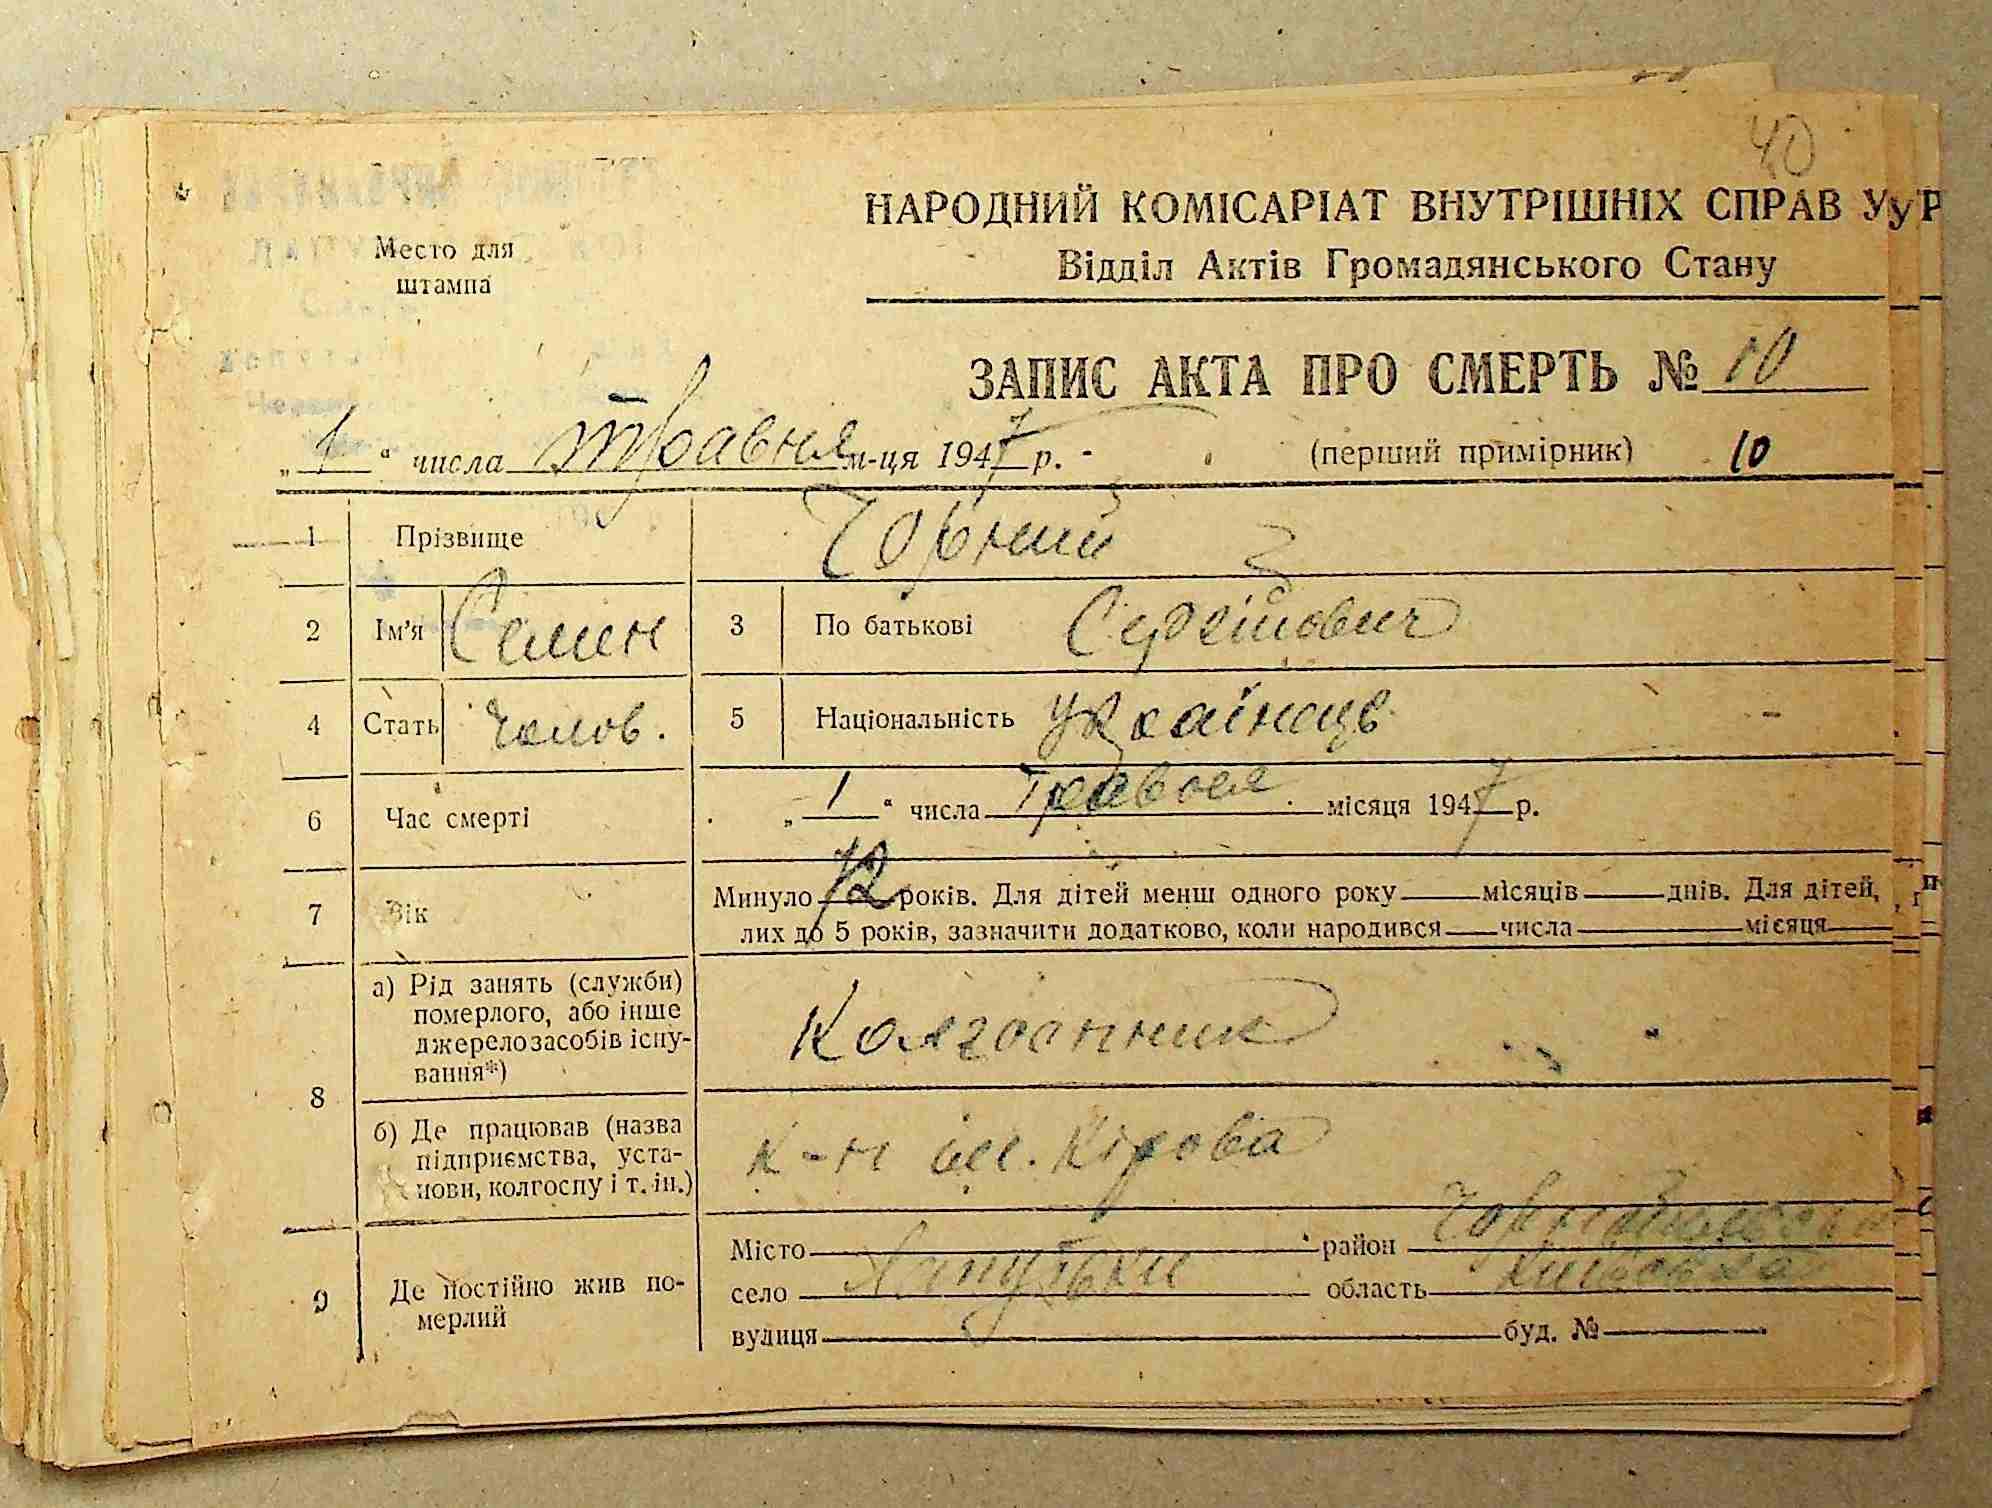 40
НАРОДНИЙ КОМІСАРІАТ ВНУТРІШНІХ СПРАВ
Место для
штампа
Відділ Актів Громадянського Стану
ЗАПИС АКТА ПРО СМЕРТЬ № 10
„1“ числа травня м-ця 1947 р.
(перший примірник) 10
1 Прізвище Чорний
2 Ім'я Семен 3 По батькові Сергійович
4 Стать чолов. 5 Національність українець
6 Час смерті „1“ числа Травня місяця 1947 р.
7 Вік Минуло 72 років. Для дітей менш одного року місяців днів. Для дітей,
лих до 5 років, зазначити додатково, коли народився числа місяця
8 а) Рід занять (служби)
померлого, або інше
джерело засобів існу-
вання*)
Колгоспник
б) Де працював (назва
підприємства, уста-
нови, колгоспу і т. ін.)
к-п ім. Кірова
9 Де постійно жив по-
мерлий
Місто район
село область Київська
вулиця буд. №